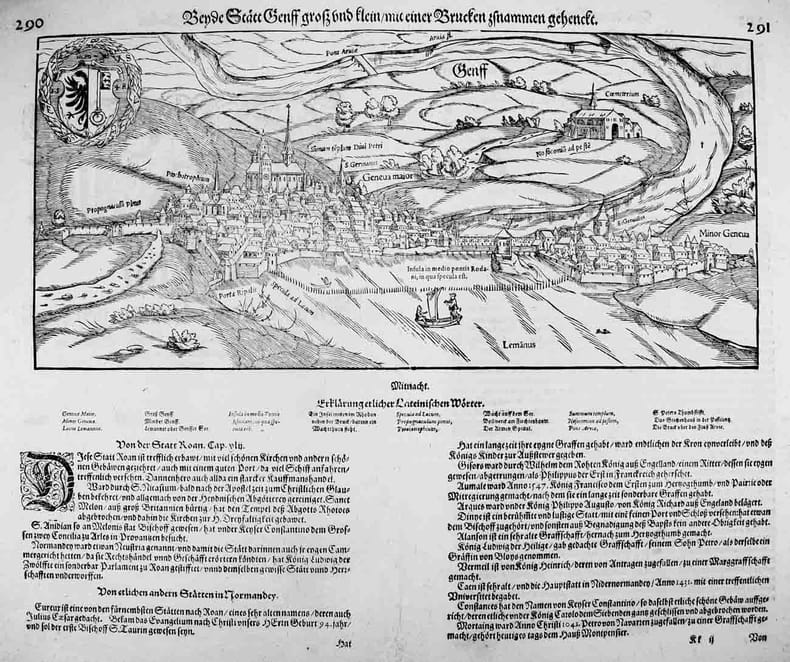 290
Beyde Stätt Genff groß vnd klein/mit einer Brucken zsnammen gehenckt.
291
Pons Aruæ
Aruæ fl.
Genff
Cœmiterium
Nosocomiū ad pestē
Summ templum Diui Petri
S. Germanus
Geneua maior
Ptochotrophium
Propugnaculū Pinus
S. Geruasius
Minor Geneua
Insula in medio pontis Roda-
ni, in qua specula est.
Porta Ripalis
Specula ad Lacum
Lemānus
Mitnacht.
Erklärung etlicher Lateinischen Wörter.
Geneua Maior, Groß Genff.
Minor Geneua, Minder Genff.
Lacus Lemannus,
Specula ad Lacum, Wacht auff den See.
Ptochotrophium, Der Armen Spittal.
Summum templum, S. Peters Thumbstifft.
Pons Aruæ, Die Bruck vber den Fluß Arue.
Von der Statt Roan. Cap. xlij.
Diese Statt Roan ist trefflich reich/mit viel schönen Kirchen vnd andern schö-
nen Gebäwen gezieret/auch mit einem guten Port/da viel Schiff anfahren/
trefflich versehen. Dannenhero auch allda ein starcker Kauffmanshandel.
Ward durch S. Nicasium/bald nach der Apostel zeit zum Christlichen Glau-
ben bekehret/vnd allgemach von der Heydnischen Abgötterey gereiniget. Sanct
Melon/auß groß Britannien bürtig/hat den Tempel deß Abgotts Rhotoes
abgebrochen/vnd dahin die Kirchen zur H. Dreyfaltigkeit gebawet.
S. Anidian ist an Melonis statt Bischoff worden/hat vnder Keyser Constantino dem Gros-
sen zwey Concilia zu Arles in Prouantzen besucht.
Normandey ward etwan Neustria genannt/vnd damit die Stätt darinnen auch jr eygen Cam-
mergericht hetten/da sie Rechtshändel vnnd Geschäfft erörtern köndten/hat König Ludwig der
Zwölffte ein sonderbar Parlament zu Roan gestifftet/vnnd demselben gewisse Stätt vnnd Herr-
schafften vnderworffen.
Von etlichen andern Stätten in Normandey.
Eureux ist eine von den fürnembsten Stätten nach Roan/eines sehr alten namens/deren auch
Julius Cæsar gedacht. Bekam das Euangelium nach Christi vnsers HErrn Geburt 94. jahr/
vnd sol der erste Bischoff S. Taurin gewesen seyn.
Hat
Hat ein lange zeit ihre eygne Graffen gehabt/ward endtlichen der Kron eynverleibt/vnd deß
Königs Kinder zur Außstewr gegeben.
Gisors ward durch Wilhelm dem Rohten König auß Engelland/einem Ritter/dessen sie eygen
gewesen/abgetrungen/als Philippus der Erst in Franckreich geherrschet.
Aumale ward Anno 1547. König Francisco dem Ersten zum Hertzogthumb/vnd Pairie oder
Mitregierung gemacht/nach dem sie ein lange zeit sonderbare Graffen gehabt.
Arques ward vnder König Philippo Augusto/von König Richard auß Engeland belägert.
Dinye ist ein berühmte vnd lustige Statt/mit eine feiner Port vnd Schloß versehen/hat etwan
dem Bischoff zugehört/vnd sonsten auß Begnadigung deß Bapsts kein andere Obigkeit gehabt.
Alanson ist ein sehr alte Graffschafft/hernach zum Hertzogthumb gemacht.
König Ludwig der Heilige/gab gedachte Graffschafft/seinem Sohn Petro/als derselb ein
Gräffin von Bloys genommen.
Vermeil ist von König Heinrich/deren von Antragen zugefallen/zu einer Marggraffschafft
gemacht.
Caen ist sehr alt/vnd die Hauptstatt in Nidernormandey/Anno 1431. mit einer treffentlichen
Vniuersitet begabet.
Constances hat den Namen von Keyser Constantino/so daselbst etliche schöne Gebäw auffge-
richt/deren etliche vnder König Carolo dem Siebenden gantz geschlissen vnd abgebrochen worden.
Mortaing ward Anno Christi 1042. Petro von Nauarren zugefallen/zu einer Graffschafft ge-
macht/gehört heutiges tags dem Hauß Montpensier.
Kk ij
Von